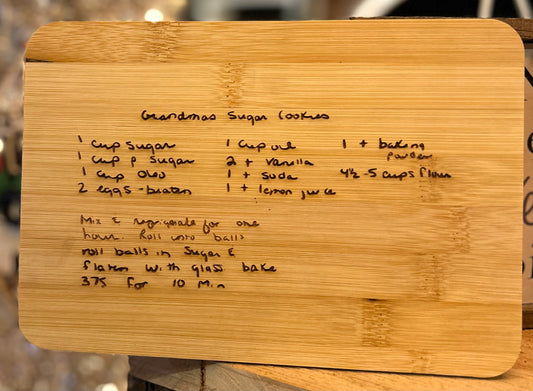 Grandmas Sugar Cookies
1 cup sugar
1 cup p sugar
1 cup oleo
2 eggs - beaten
1 cup oil
2 t vanilla
1 t soda
1 t lemon juice
1 t baking
powder
4½-5 cups flour
Mix & refrigerate for one
hour. Roll into balls
roll balls in sugar &
flatten with glass bake
375 for 10 min